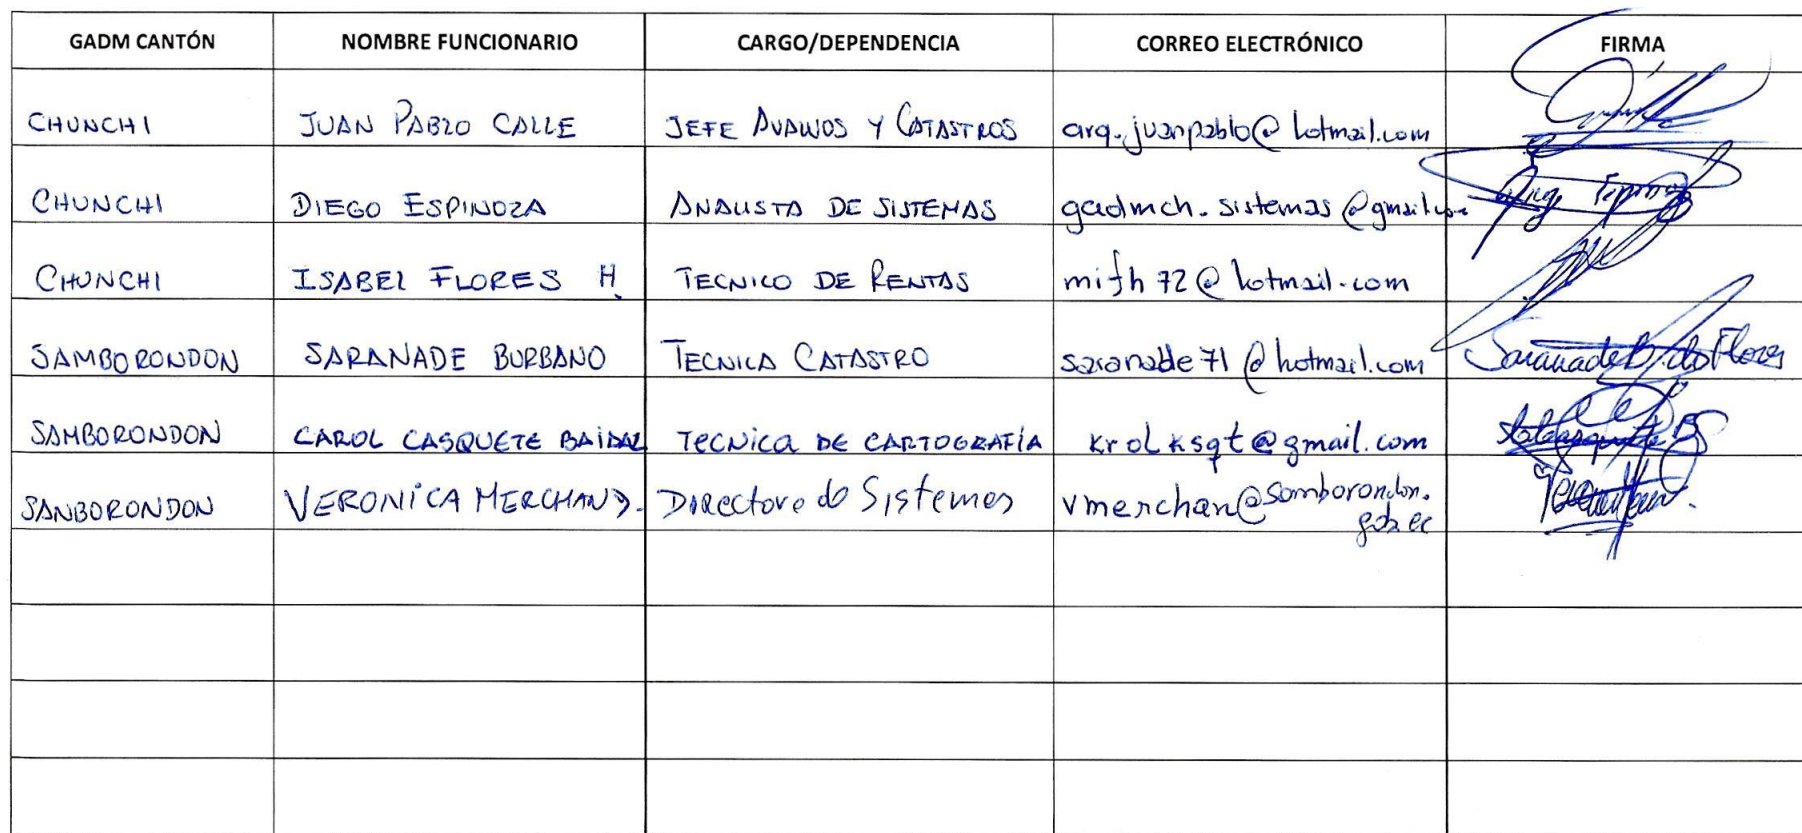 GADM CANTÓN NOMBRE FUNCIONARIO CARGO/DEPENDENCIA CORREO ELECTRÓNICO FIRMA
CHUNCHI JUAN PABLO CALLE JEFE AVALUOS Y CATASTROS arq.juanpablo@hotmail.com
CHUNCHI DIEGO ESPINOZA ANALISTA DE SISTEMAS gadmch.sistemas@gmail.com
CHUNCHI ISABEL FLORES H. TECNICO DE RENTAS mifh72@hotmail.com
SAMBORONDON SARANADE BURBANO TECNICA CATASTRO saranade71@hotmail.com Saranade B. de Flores
SAMBORONDON CAROL CASQUETE BAIDAL TECNICA DE CARTOGRAFÍA krolksqt@gmail.com
SANBORONDON VERONICA MERCHAN D. Directora de Sistemas vmerchan@samborondon.
gob.ec